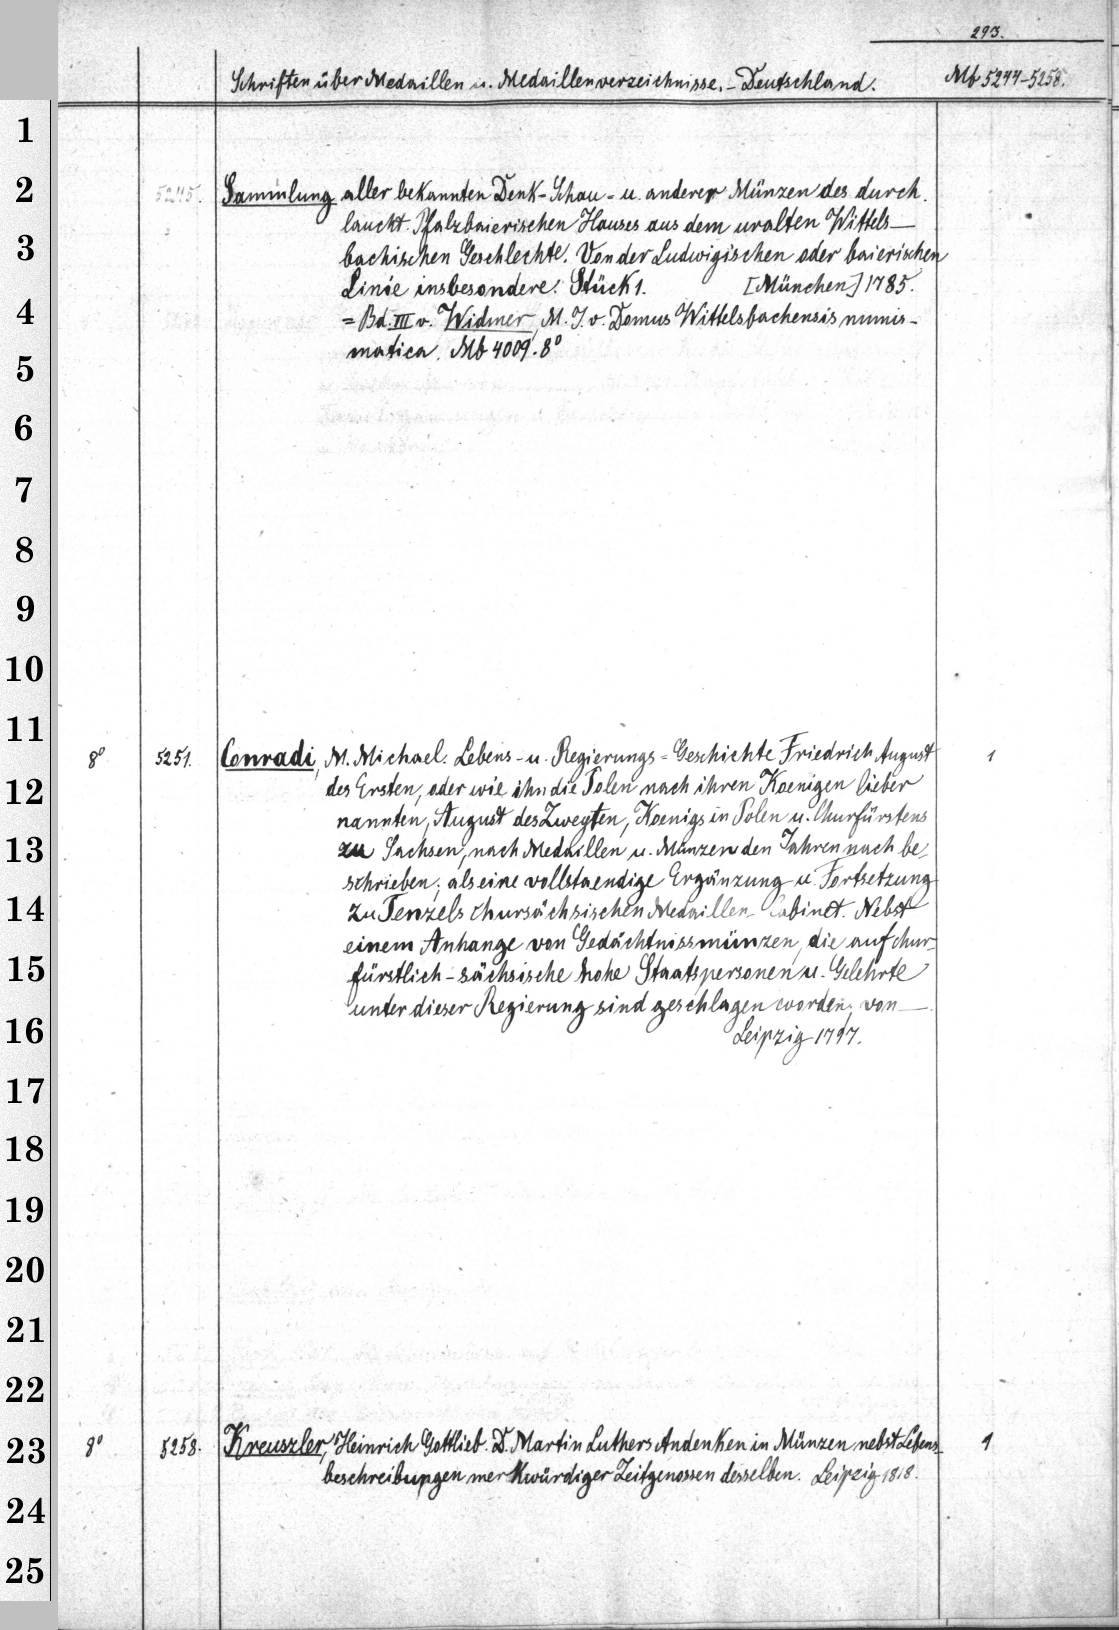 293.
Schriften über Medaillen u. Medaillenverzeichnisse. - Deutschland. Mb 5244-5258.
1
2
3
4
5
6
7
8
9
10
11
12
13
14
15
16
17
18
19
20
21
22
23
24
25
5245. Sammlung aller bekannten Denk- Schau- u. anderer Münzen des durch.
laucht. Pfalzbaierischen Hauses aus dem uralten Wittels-
bachischen Geschlechte. Von der Ludwigischen oder baierischen
Linie insbesondere. Stück 1. [München] 1785.
= Bd. III v. Widmer, M. J. v. Domus Wittelsbachensis numis-
matica. Mb 4009. 8°
8° 5251. Conradi, M. Michael. Lebens- u. Regierungs=Geschichte Friedrich August 1
des Ersten, oder wie ihn die Polen nach ihren Koenigen lieber
nannten, August des Zweyten, Koenigs in Polen u. Churfürstens
zu Sachsen, nach Medaillen u. Münzen den Jahren nach be-
schrieben; als eine vollstaendige Ergänzung u. Fortsetzung
zu Tenzels chursächsischen Medaillen-Cabinet. Nebst
einem Anhange von Gedächtnissmünzen, die auf chur-
fürstlich-sächsische hohe Staatspersonen u. Gelehrte
unter dieser Regierung sind geschlagen worden; von —
Leipzig 1797.
8° 5258. Kreuszler, Heinrich Gottlieb. D. Martin Luthers Andenken in Münzen nebst Lebens- 1
beschreibungen merkwürdiger Zeitgenossen desselben. Leipzig 1818.